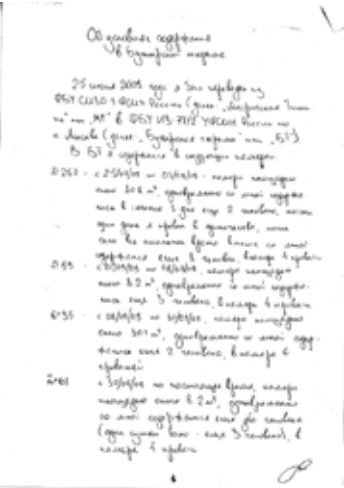 Об условиях содержания
в Бутырской тюрьме
25 июля 2009 года я был переведен из
ФБУ СИЗО-1 ФСИН России (далее „Матросская Тиши-
на“ или „МТ“) в ФБУ ИЗ 77/2 УФСИН России по
г. Москве (далее „Бутырская тюрьма“ или „БТ“).
В БТ я содержался в следующих камерах
№ 267 - с 25/07/09 по камера площадью
около 10.8 м², одновременно со мной содержа-
лись в течение 3 дней еще 2 человека, после
один день я провел в одиночестве,
все остальное время вместе со мной
содержался еще 3 человека, в камере 4 кровати
№ 59 - с по камера площадью
около 8.2 м², одновременно со мной содержа-
лись еще 3 человека, в камере 4 кровати
№ 35 - с по камера площадью
около 10.1 м², одновременно со мной содер-
жались еще 2 человека, в камере 6
кроватей
№ 61 с по настоящее время, камера
площадью около 8.2 м², одновременно
со мной содержался еще человека
(один еще 3 человека), в
камере 4 кровати